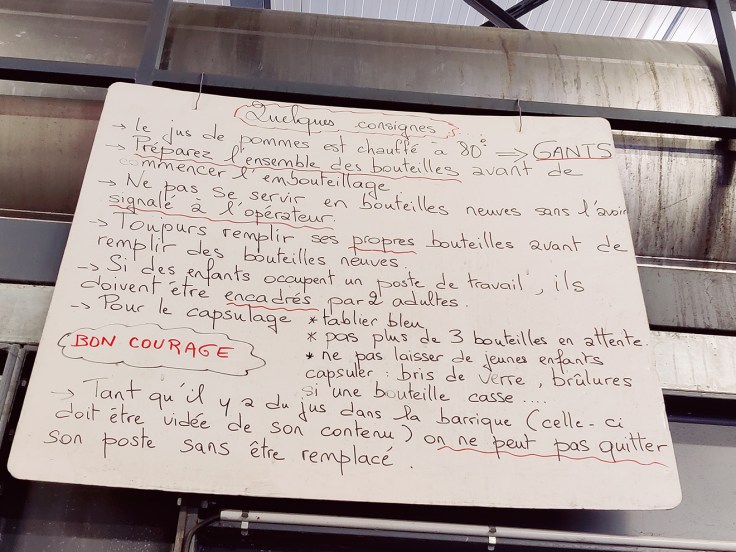 Quelques consignes
→ le jus de pommes est chauffé à 80° ⇒ GANTS
→ Préparez l'ensemble des bouteilles avant de
commencer l'embouteillage
→ Ne pas se servir en bouteilles neuves sans l'avoir
signalé à l'opérateur.
→ Toujours remplir ses propres bouteilles avant de
remplir des bouteilles neuves.
→ Si des enfants occupent un poste de travail, ils
doivent être encadrés par 2 adultes.
→ Pour le capsulage * tablier bleu
* pas plus de 3 bouteilles en attente.
BON COURAGE
* ne pas laisser de jeunes enfants
capsuler : bris de verre, brûlures
si une bouteille casse ....
→ Tant qu'il y a du jus dans la barrique (celle-ci
doit être vidée de son contenu) on ne peut pas quitter
son poste sans être remplacé.